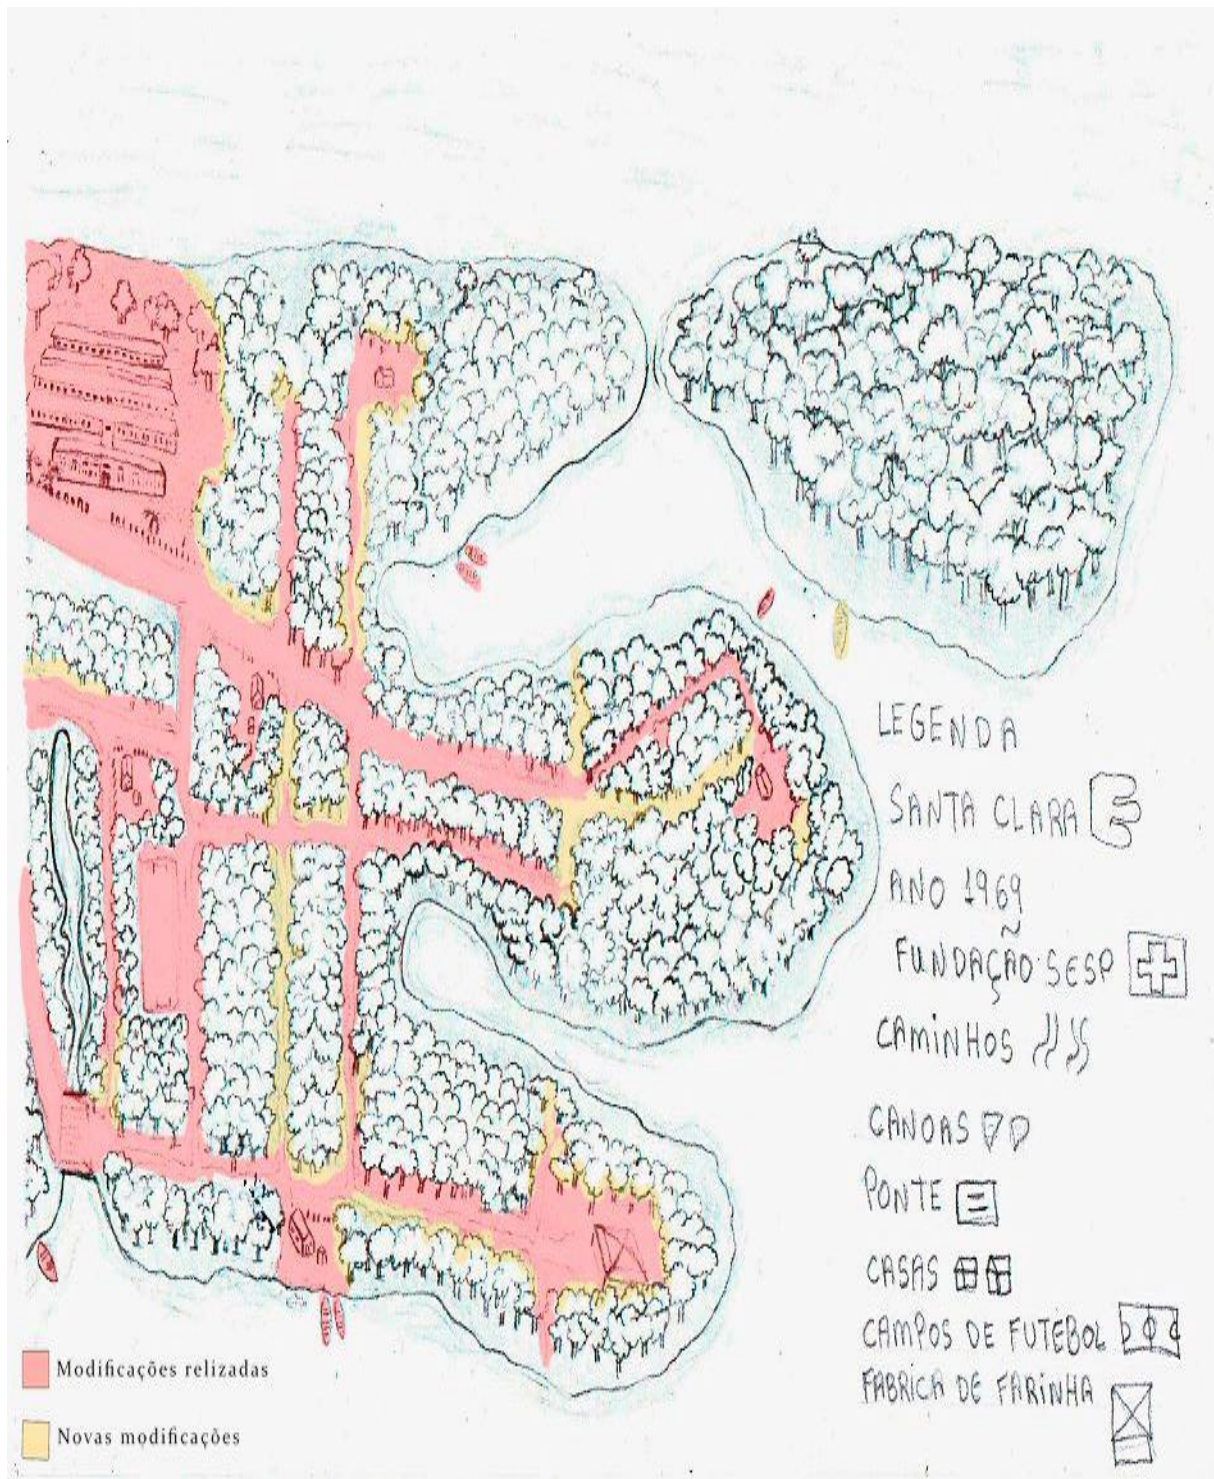 LEGENDA
SANTA CLARA
ANO 1969
FUNDAÇÃO SESP
CAMINHOS
CANOAS
PONTE
CASAS
CAMPOS DE FUTEBOL
FABRICA DE FARINHA
Modificações relizadas
Novas modificações